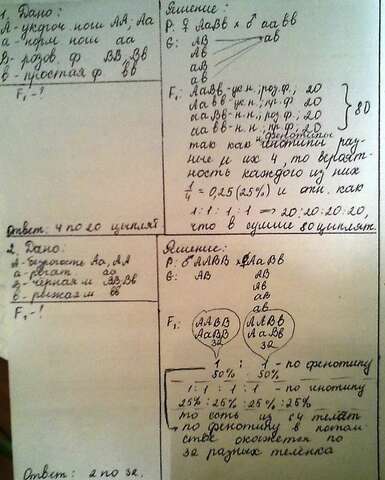 1. Дано:
А - укороч. ноги АА; Аа
а - норм. ноги аа
В - розов. ф ВВ, Вв
в - простая ф вв
F₁ - ?
Ответ: 4 по 20 цыплят
Решение:
Р: ♀ АаВв × ♂ аавв
G: АВ ав
Ав
аВ
ав
F₁: АаВв - ук.н.; роз.ф.; 20
Аавв - ук.н.; пр.ф.; 20
ааВв - н.н.; роз.ф.; 20
аавв - н.н.; пр.ф.; 20
} 80
так как фенотипы раз-
ные и их 4, то вероят-
ность каждого из них
1/4 = 0,25 (25%) и отн. как
1:1:1:1 => 20:20:20:20,
что в сумме 80 цыплят.
2. Дано:
А - безрогость Аа, АА
а - рогат. аа
В - черная м ВВ, Вв
в - рыжая м вв
F₁ - ?
Ответ: 2 по 32.
Решение:
Р: ♂ ААВВ × ♀ АаВв
G: АВ АВ
Ав
аВ
ав
F₁:
32 32
1 : 1 - по фенотипу
50% : 50%
1:1:1:1 - по генотипу
25%:25%:25%:25%
то есть из 64 телят
по фенотипу в потом
стве окажется по
32 разных телёнка